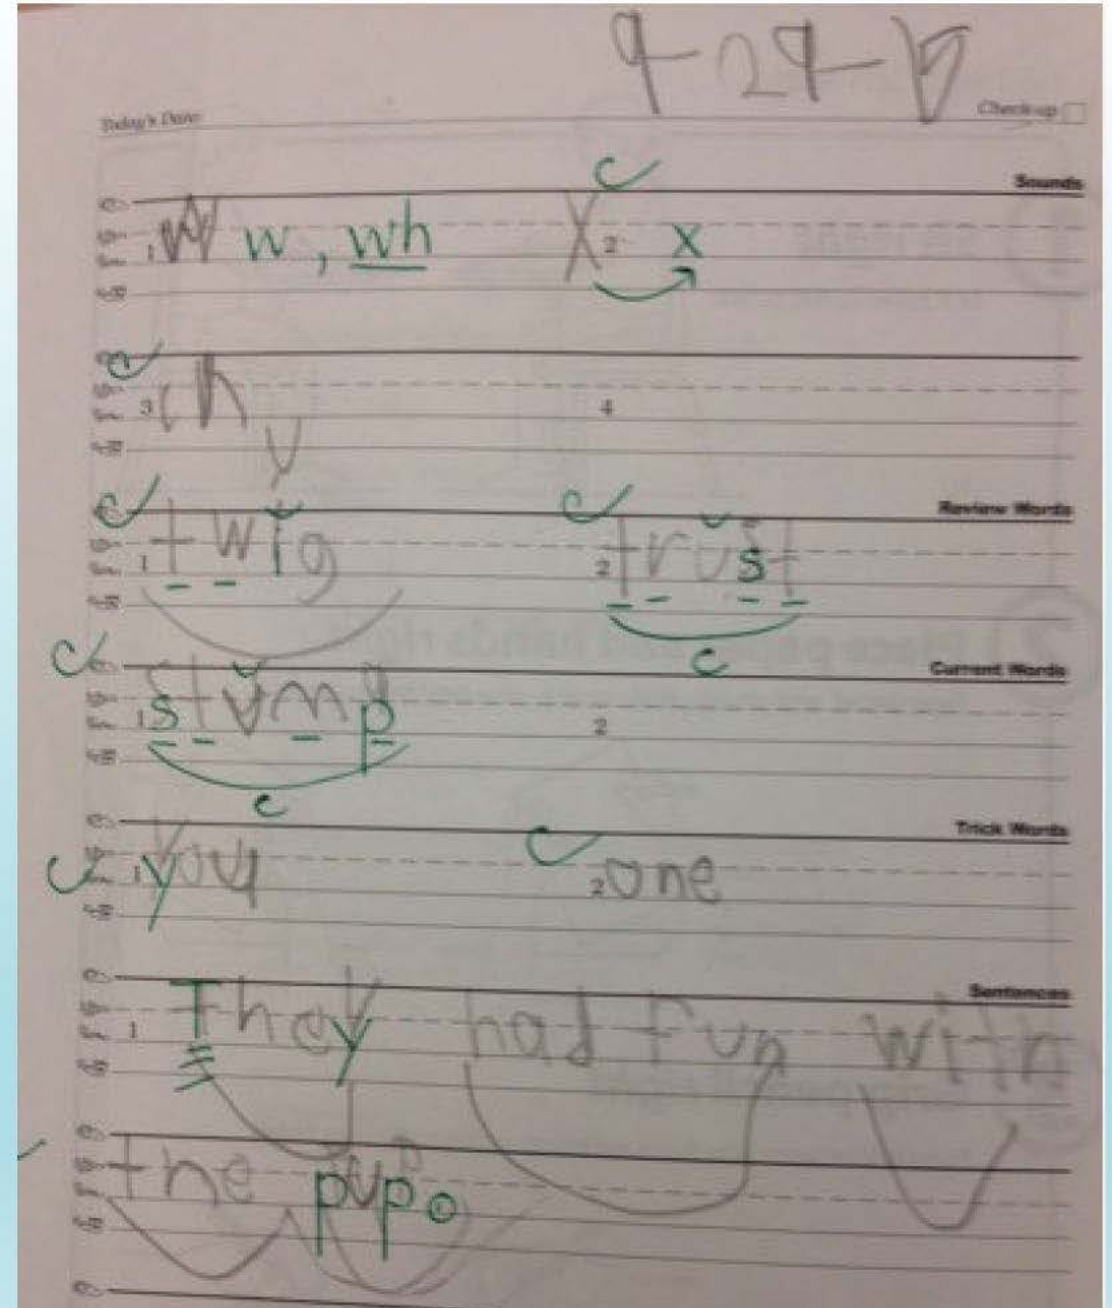 9-29-15
Today's Date Check-up
Sounds
1 W w, wh X 2 x
3 ch, y 4
Review Words
1 twig 2 trust
c
Current Words
1 stump 2
c
Trick Words
1 you 2 one
Sentences
1 They had fun with
the pup.